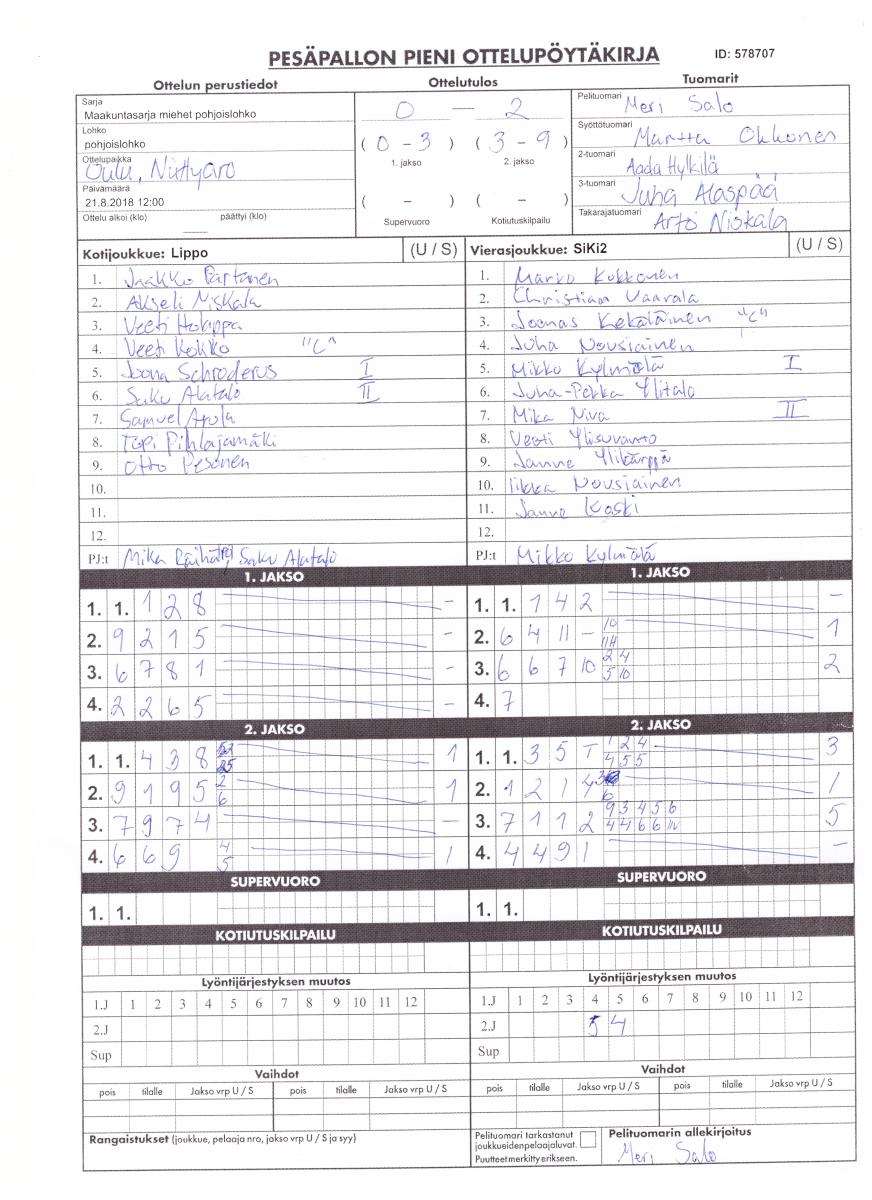 PESÄPALLON PIENI OTTELUPÖYTÄKIRJA ID: 578707
Ottelun perustiedot Ottelutulos Tuomarit
Sarja
Maakuntasarja miehet pohjoislohko
Lohko
pohjoislohko
Ottelupaikka
Oulu,
Päivämäärä
21.8.2018 12:00
Ottelu alkoi (klo) päättyi (klo)
0 — 2
( 0 - 3 ) ( 3 - 9 )
1. jakso 2. jakso
( - ) ( - )
Supervuoro Kotiutuskilpailu
Pelituomari Meri Salo
Syöttötuomari Martta Okkonen
2-tuomari Aada Hylkilä
3-tuomari Juha Alaspää
Takarajatuomari Arto Niskala
Kotijoukkue: Lippo (U / S)
1. Jaakko Partanen
2. Akseli Niskala
3. Veeti Holappa
4. Veeti Kokko "C"
5. Joona Schroderus I
6. Saku Alatalo II
7. Samuel Arola
8. Topi Pihlajamäki
9. Otto Pesonen
10.
11.
12.
PJ:t Mika Saku Alatalo
Vierasjoukkue: SiKi2 (U / S)
1. Marko Kokkonen
2. Christian Vaarala
3. Joonas Kekäläinen "C"
4. Juha Nousiainen
5. Mikko Kylmälä I
6. Juha-Pekka Ylitalo
7. Mika Niva II
8. Veeti Ylisuvanto
9. Janne Ylikärppä
10. Iikka Nousiainen
11. Janne Koski
12.
PJ:t Mikko Kylmälä
1. JAKSO
1. 1. 1 2 8 -
2. 9 2 1 5 -
3. 6 7 8 1 -
4. 2 2 6 5 -
1. JAKSO
1. 1. 1 4 2 -
2. 6 4 11 - 10 1
11H
3. 6 6 7 10 2 4 2
5 10
4. 7
2. JAKSO
1. 1. 4 3 8 1
25
2. 9 1 9 5 2 1
6
3. 7 9 7 4 -
4. 6 6 9 4 1
5
2. JAKSO
1. 1. 3 5 T 1 2 4 3
4 5 5
2. 1 2 1 4 3 1
6
3. 7 1 1 2 9 3 4 5 6 5
4 4 6 6
4. 4 4 9 1 -
SUPERVUORO
1. 1.
SUPERVUORO
1. 1.
KOTIUTUSKILPAILU
KOTIUTUSKILPAILU
Lyöntijärjestyksen muutos
1.J 1 2 3 4 5 6 7 8 9 10 11 12
2.J
Sup
Lyöntijärjestyksen muutos
1.J 1 2 3 4 5 6 7 8 9 10 11 12
2.J 5 4
Sup
Vaihdot
pois tilalle Jakso vrp U / S pois tilalle Jakso vrp U / S
Vaihdot
pois tilalle Jakso vrp U / S pois tilalle Jakso vrp U / S
Rangaistukset (joukkue, pelaaja nro, jakso vrp U / S ja syy)
Pelituomari tarkastanut
joukkueidenpelaajaluvat.
Puutteet merkitty erikseen.
Pelituomarin allekirjoitus
Meri Salo